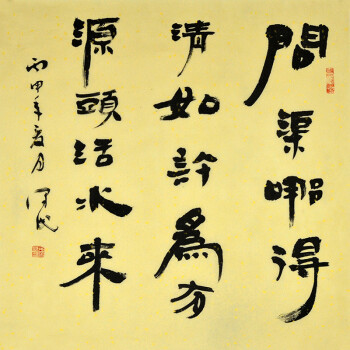 問渠哪得
清如許為有
源頭活水來
丙申年夏月